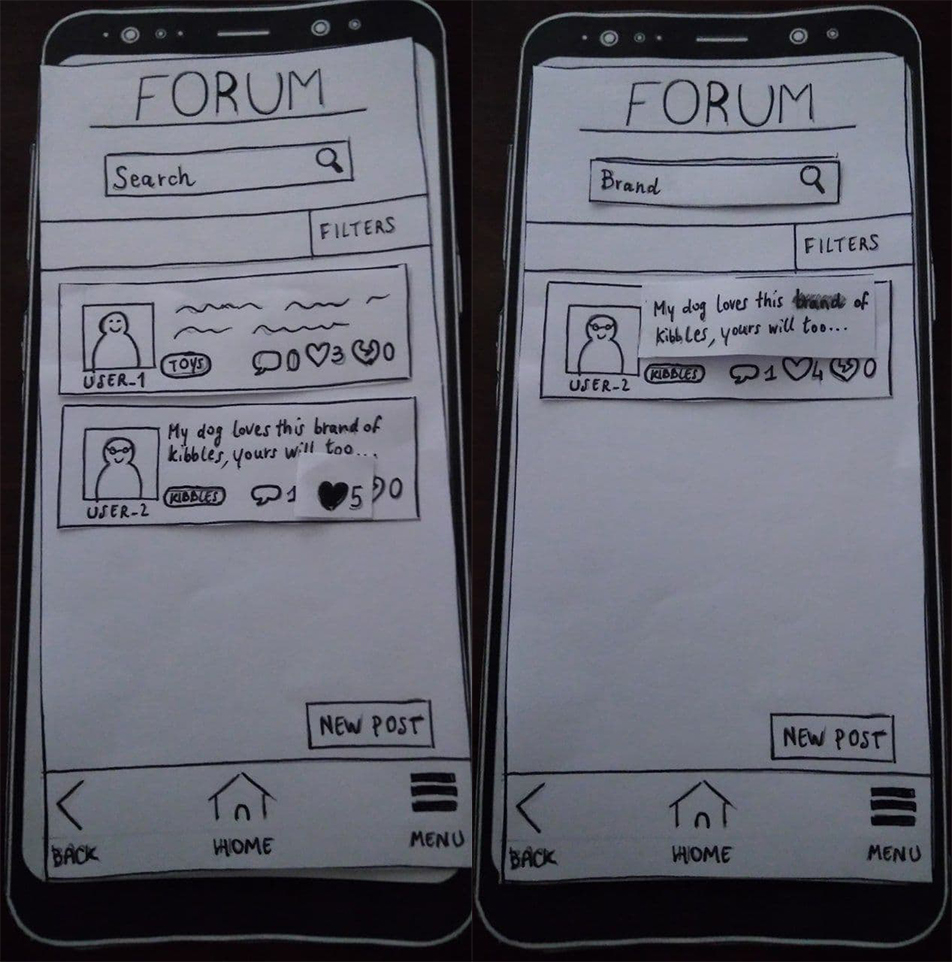 FORUM
Search
FILTERS
USER_1
TOYS
0
3
0
My dog loves this brand of
kibbles, yours will too...
USER_2
KIBBLES
1
5
0
NEW POST
BACK
HOME
MENU
FORUM
Brand
FILTERS
My dog loves this brand of
kibbles, yours will too...
USER_2
KIBBLES
1
4
0
NEW POST
BACK
HOME
MENU